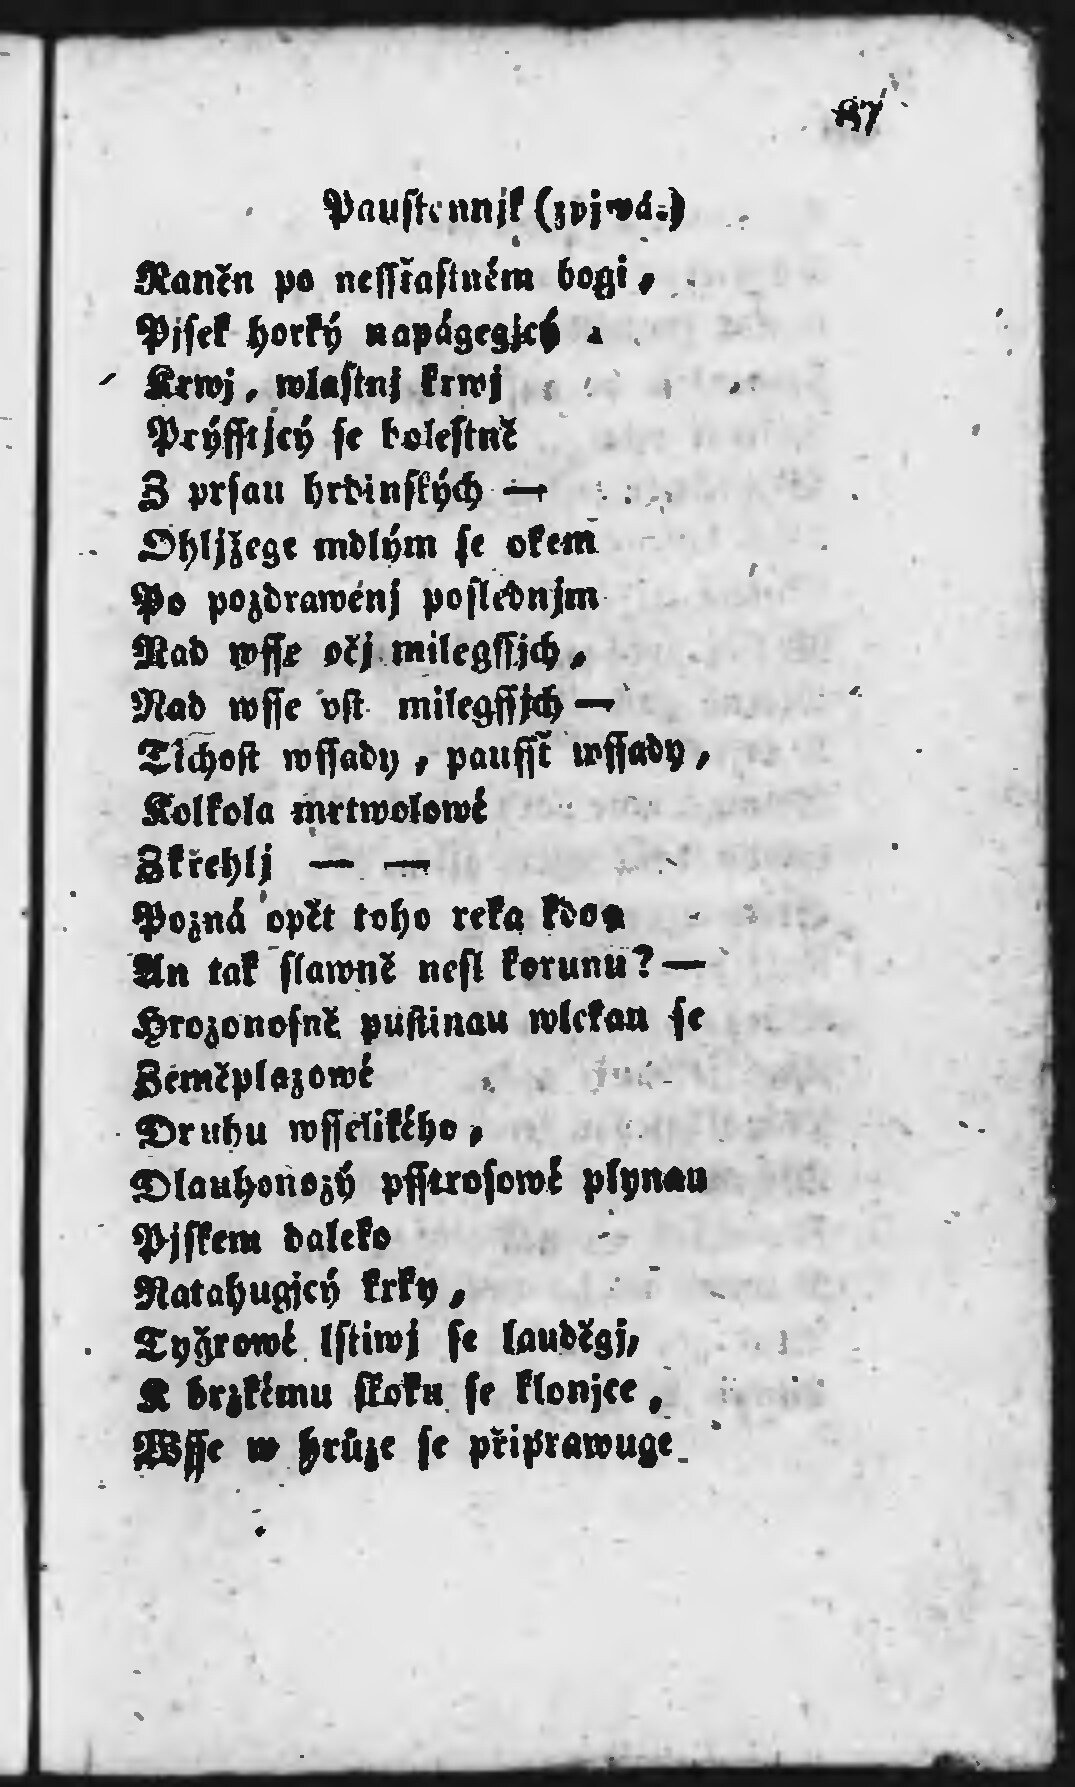 87
Pauſtennjk (zpjwá.)
Raněn po neſſťaſtném bogi,
Pjſek horký napágegjcý
Krwj, wlaſtnj krwj
Prýſſtjcý ſe boleſtně
Z prſau hrdinſkých —
Ohljžege mdlým ſe okem
Po pozdrawenj poſlednjm
Nad wſſe očj milegſſjch,
Nad wſſe vſt milegſſjch —
Tichoſt wſſady, pauſſť wſſady,
Kolkola mrtwolowé
Zkřehlj — —
Pozná opět toho reka kdo
An tak ſlawně neſl korunu? —
Hrozonoſně puſtinau wlekau ſe
Zeměplazowé
Druhu wſſelikého,
Dlauhonozý pſſtroſowé plynau
Pjſkem daleko
Natahugjcý krky,
Tygrowé lſtiwj ſe lauděgj,
K brzkému ſkoku ſe klonjce,
Wſſe w hrůze ſe připrawuge